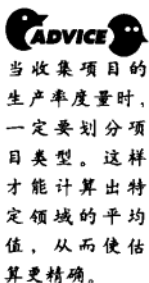 ADVICE
当收集项目的
生产率度量时，
一定要划分项
目类型。这样
才能计算出特
定领域的平均
值，从而使估
算更精确。